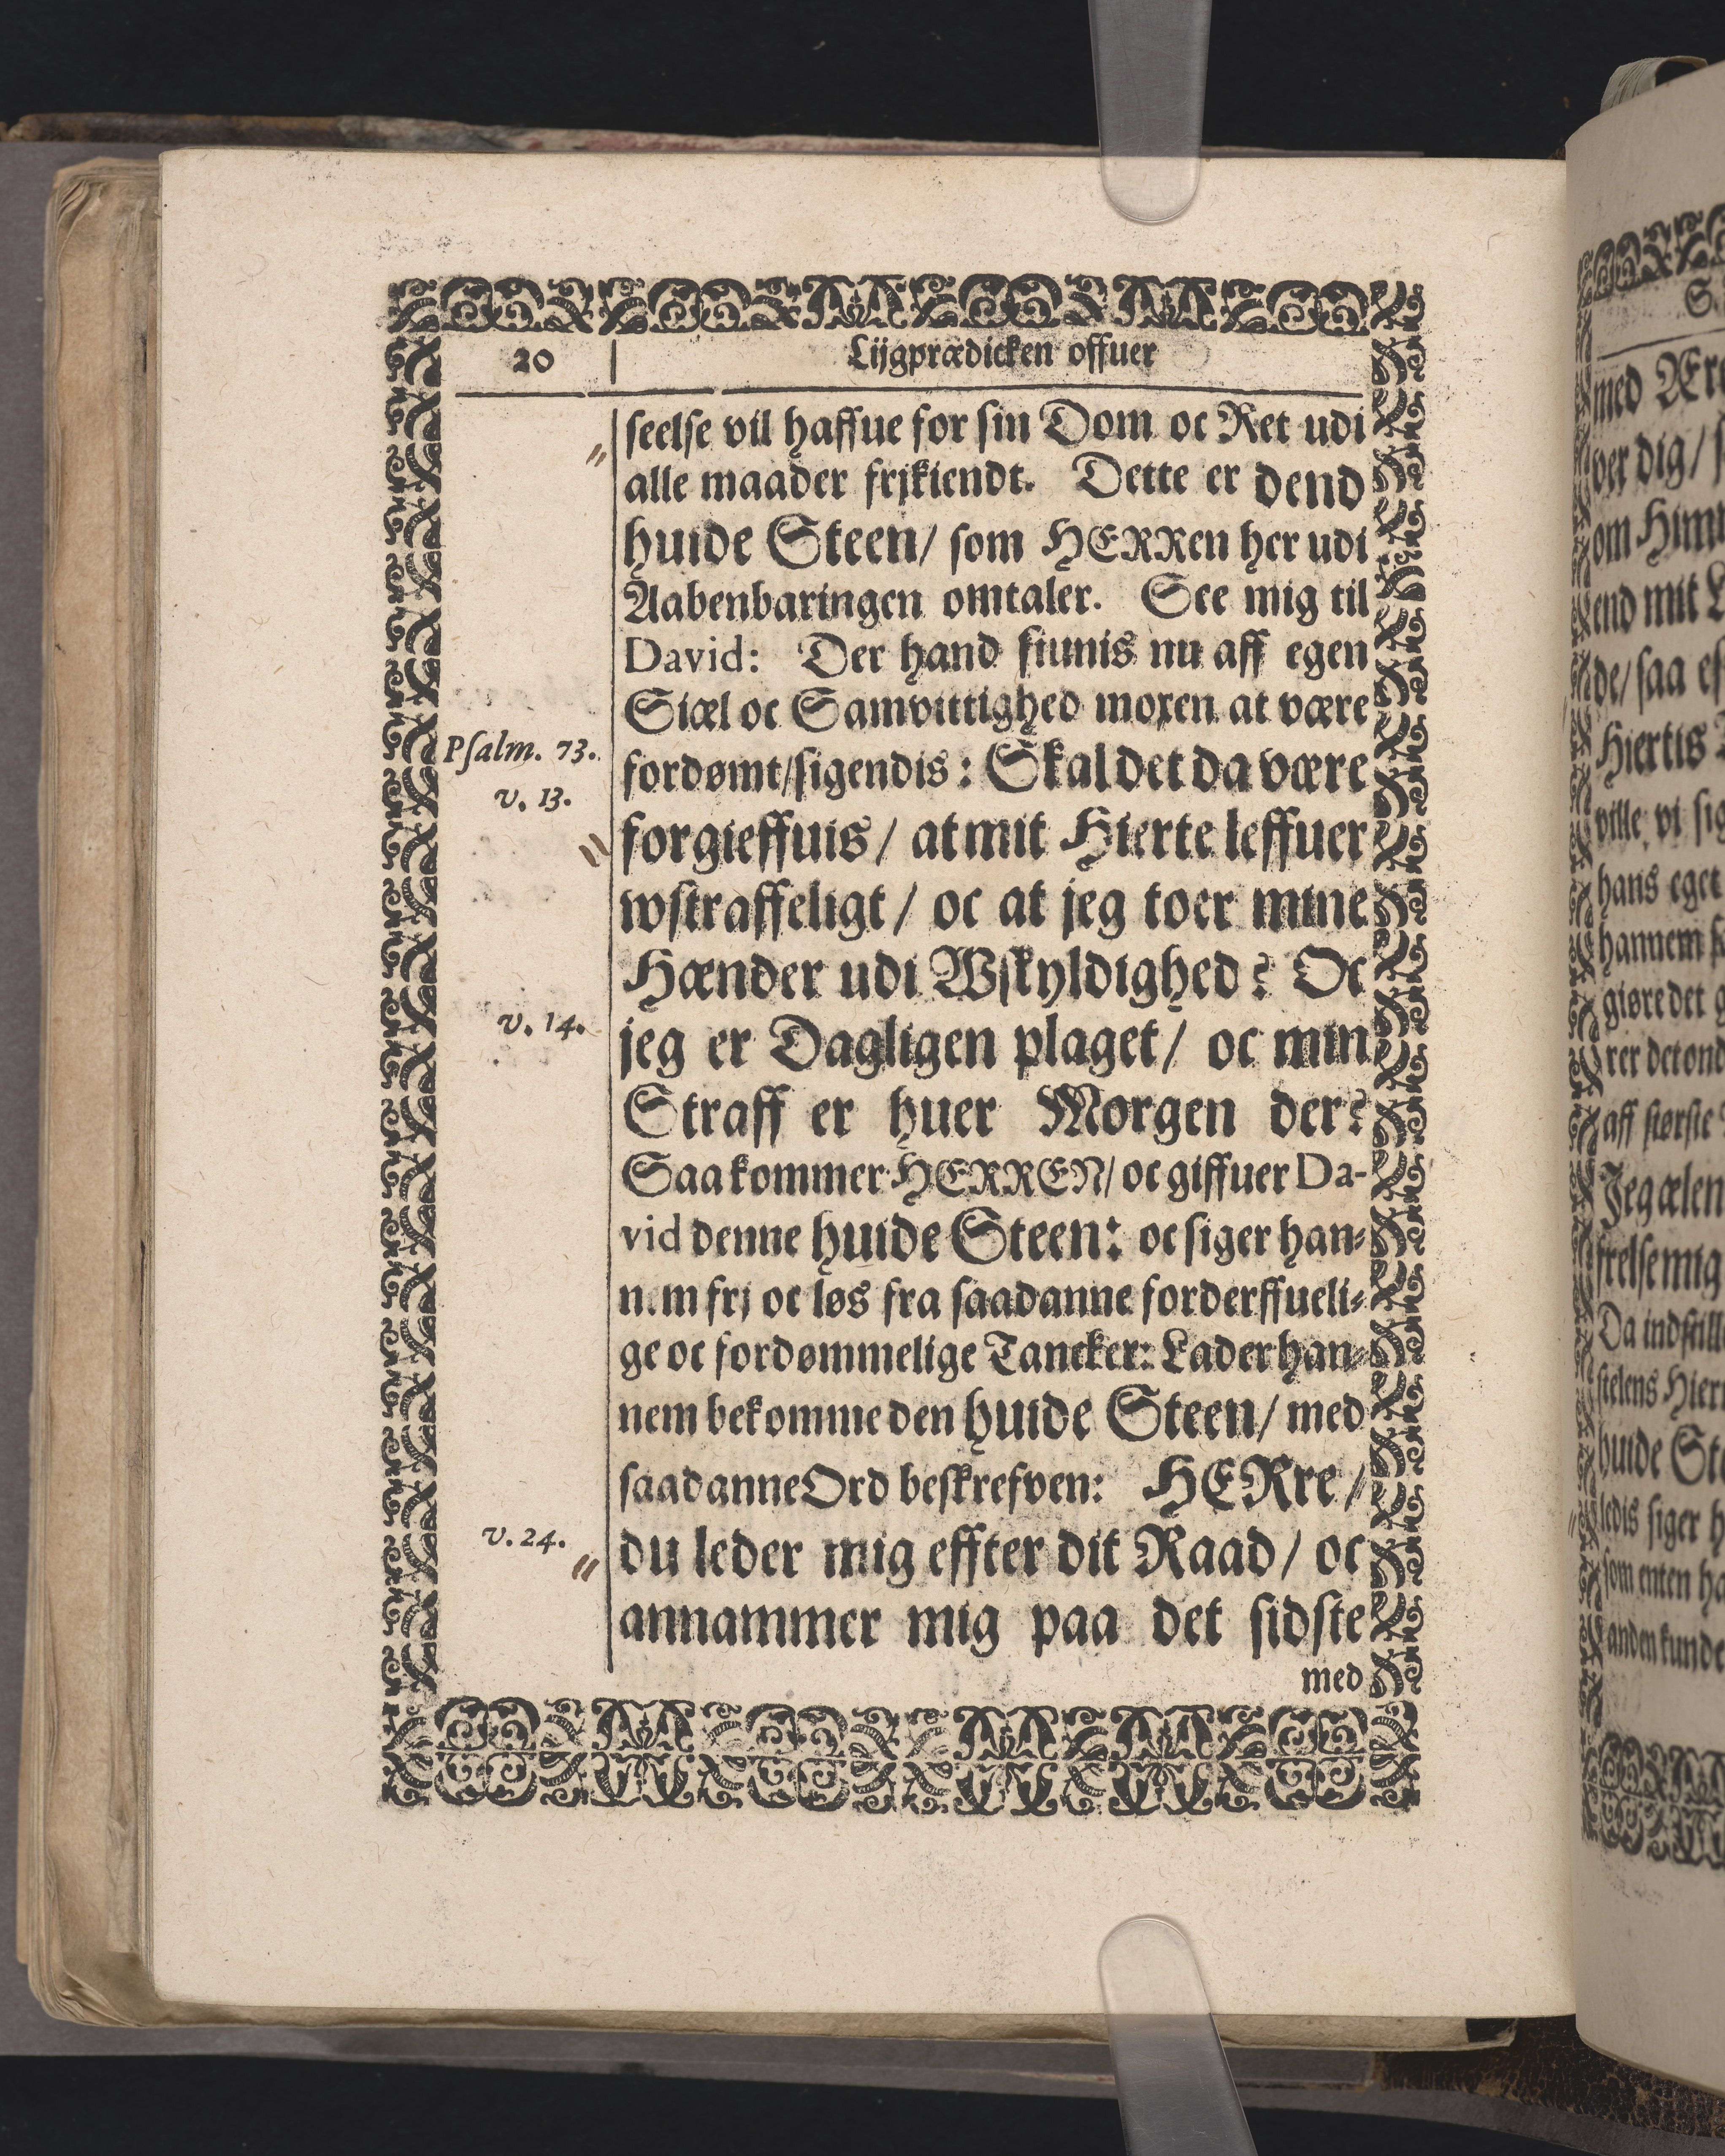 20 Lijgprædicken offuer
seelse vil haffue for sin Dom oc Ret udi
alle maader frjkiendt. Dette er dend
huide Steen/ som HERRen her udi
Aabenbaringen omtaler. See mig til
David: Der hand siunis nu aff egen
Siæl oc Samvittighed moxen at være
Psalm. 73.
v. 13.
fordømt/sigendis: Skal det da være
forgieffuis/ at mit Hierte leffuer
wstraffeligt/ oc at jeg toer mine
Hænder udi Wskyldighed? Oc
v. 14.
jeg er Dagligen plaget/ oc min
Straff er huer Morgen der?
Saa kommer HERREN/ oc giffuer Da-
vid denne huide Steen: oc siger han-
n.m frj oc løs fra saadanne forderffueli-
ge oc fordømmelige Tancker: Lader han-
nem bekomme den huide Steen/ med
saadanne Ord beskrefven: HERre/
v. 24.
du leder mig effter dit Raad/ oc
annammer mig paa det sidste
med